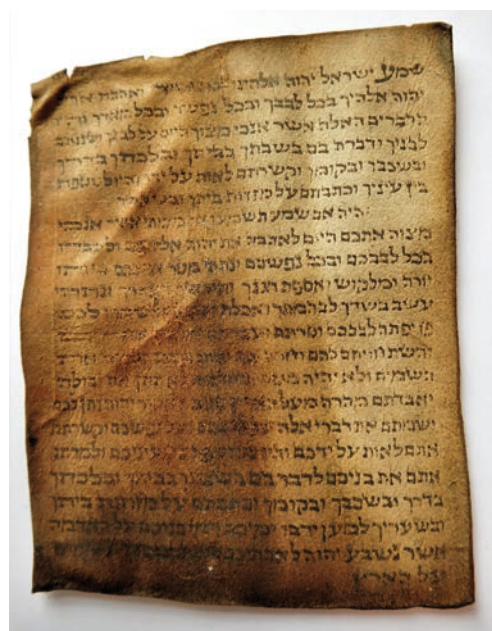 שמע ישראל יהוה אלהינו ואהבת את
יהוה אלהיך בכל לבבך ובכל נפשך ובכל מאדך והיו
הדברים האלה אשר אנכי מצוך היום על לבבך ושננתם
לבניך ודברת בם בשבתך בביתך ובלכתך בדרך
ובשכבך ובקומך וקשרתם לאות על ידך והיו לטטפת
בין עיניך וכתבתם על מזזות ביתך
והיה אם שמע תשמעו אל מצותי אשר אנכי
מצוה אתכם היום לאהבה את יהוה אלהיכם ולעבדו
בכל לבבכם ובכל נפשכם ונתתי מטר
יורה ומלקוש ואספת דגנך ונתתי
עשב בשדך לבהמתך ואכלת לכם
פן יפתה לבבכם וסרתם
והשתחויתם להם וחרה
השמים ולא יהיה מטר לא תתן את יבולה
ואבדתם מהרה מעל יהוה נתן לכם
ושמתם את דברי אלה ועל נפשכם וקשרתם
אתם לאות על ידכם והיו עיניכם ולמדתם
אתם את בניכם לדבר בם בשבתך בביתך ובלכתך
בדרך ובשכבך ובקומך וכתבתם על מזוזות ביתך
ובשעריך למען ירבו ימיכם וימי בניכם על האדמה
אשר נשבע יהוה לאבתיכם
על הארץ